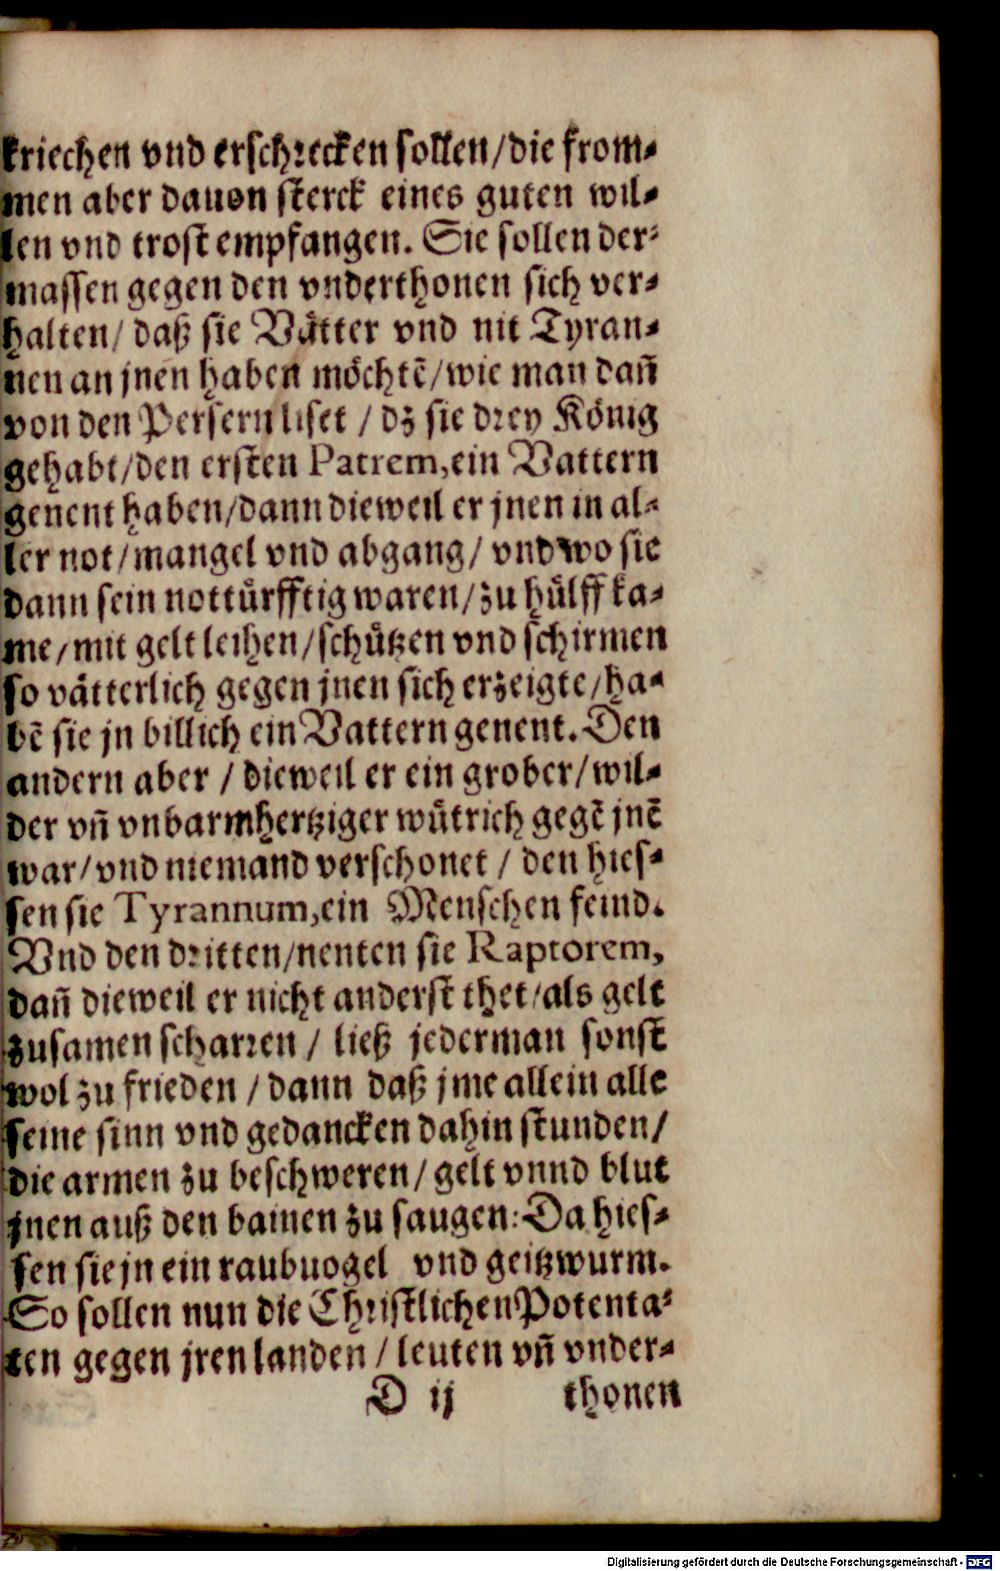 kriechen vnd erschrecken sollen/die from-
men aber dauon sterck eines guten wil-
len vnd trost empfangen. Sie sollen der-
massen gegen den vnderthonen sich ver-
halten/ daß sie Vätter vnd nit Tyran-
nen an jnen haben möchtẽ/wie man dañ
von den Persern liset / dz sie drey König
gehabt/den ersten Patrem,ein Vattern
genent haben/dann dieweil er jnen in al-
ler not/mangel vnd abgang/ vnd wo sie
dann sein nottürfftig waren/zu hülff ka-
me/mit gelt leihen/schützen vnd schirmen
so vätterlich gegen jnen sich erzeigte/ha-
bẽ sie jn billich ein Vattern genent. Den
andern aber / dieweil er ein grober/wil-
der vñ vnbarmhertziger wütrich gegẽ jnẽ
war/vnd niemand verschonet / den hies-
sen sie Tyrannum,ein Menschen feind.
Vnd den dritten/nenten sie Raptorem,
dañ dieweil er nicht anderst thet/als gelt
zusamen scharren / ließ jederman sonst
wol zu frieden / dann daß jme allein alle
seine sinn vnd gedancken dahin stunden/
die armen zu beschweren/gelt vnnd blut
jnen auß den bainen zu saugen: Da hies-
sen sie jn ein raubuogel vnd geitzwurm.
So sollen nun die Christlichen Potenta-
ten gegen jren landen / leuten vñ vnder-
D ij thonen
Digitalisierung gefördert durch die Deutsche Forschungsgemeinschaft - DFG